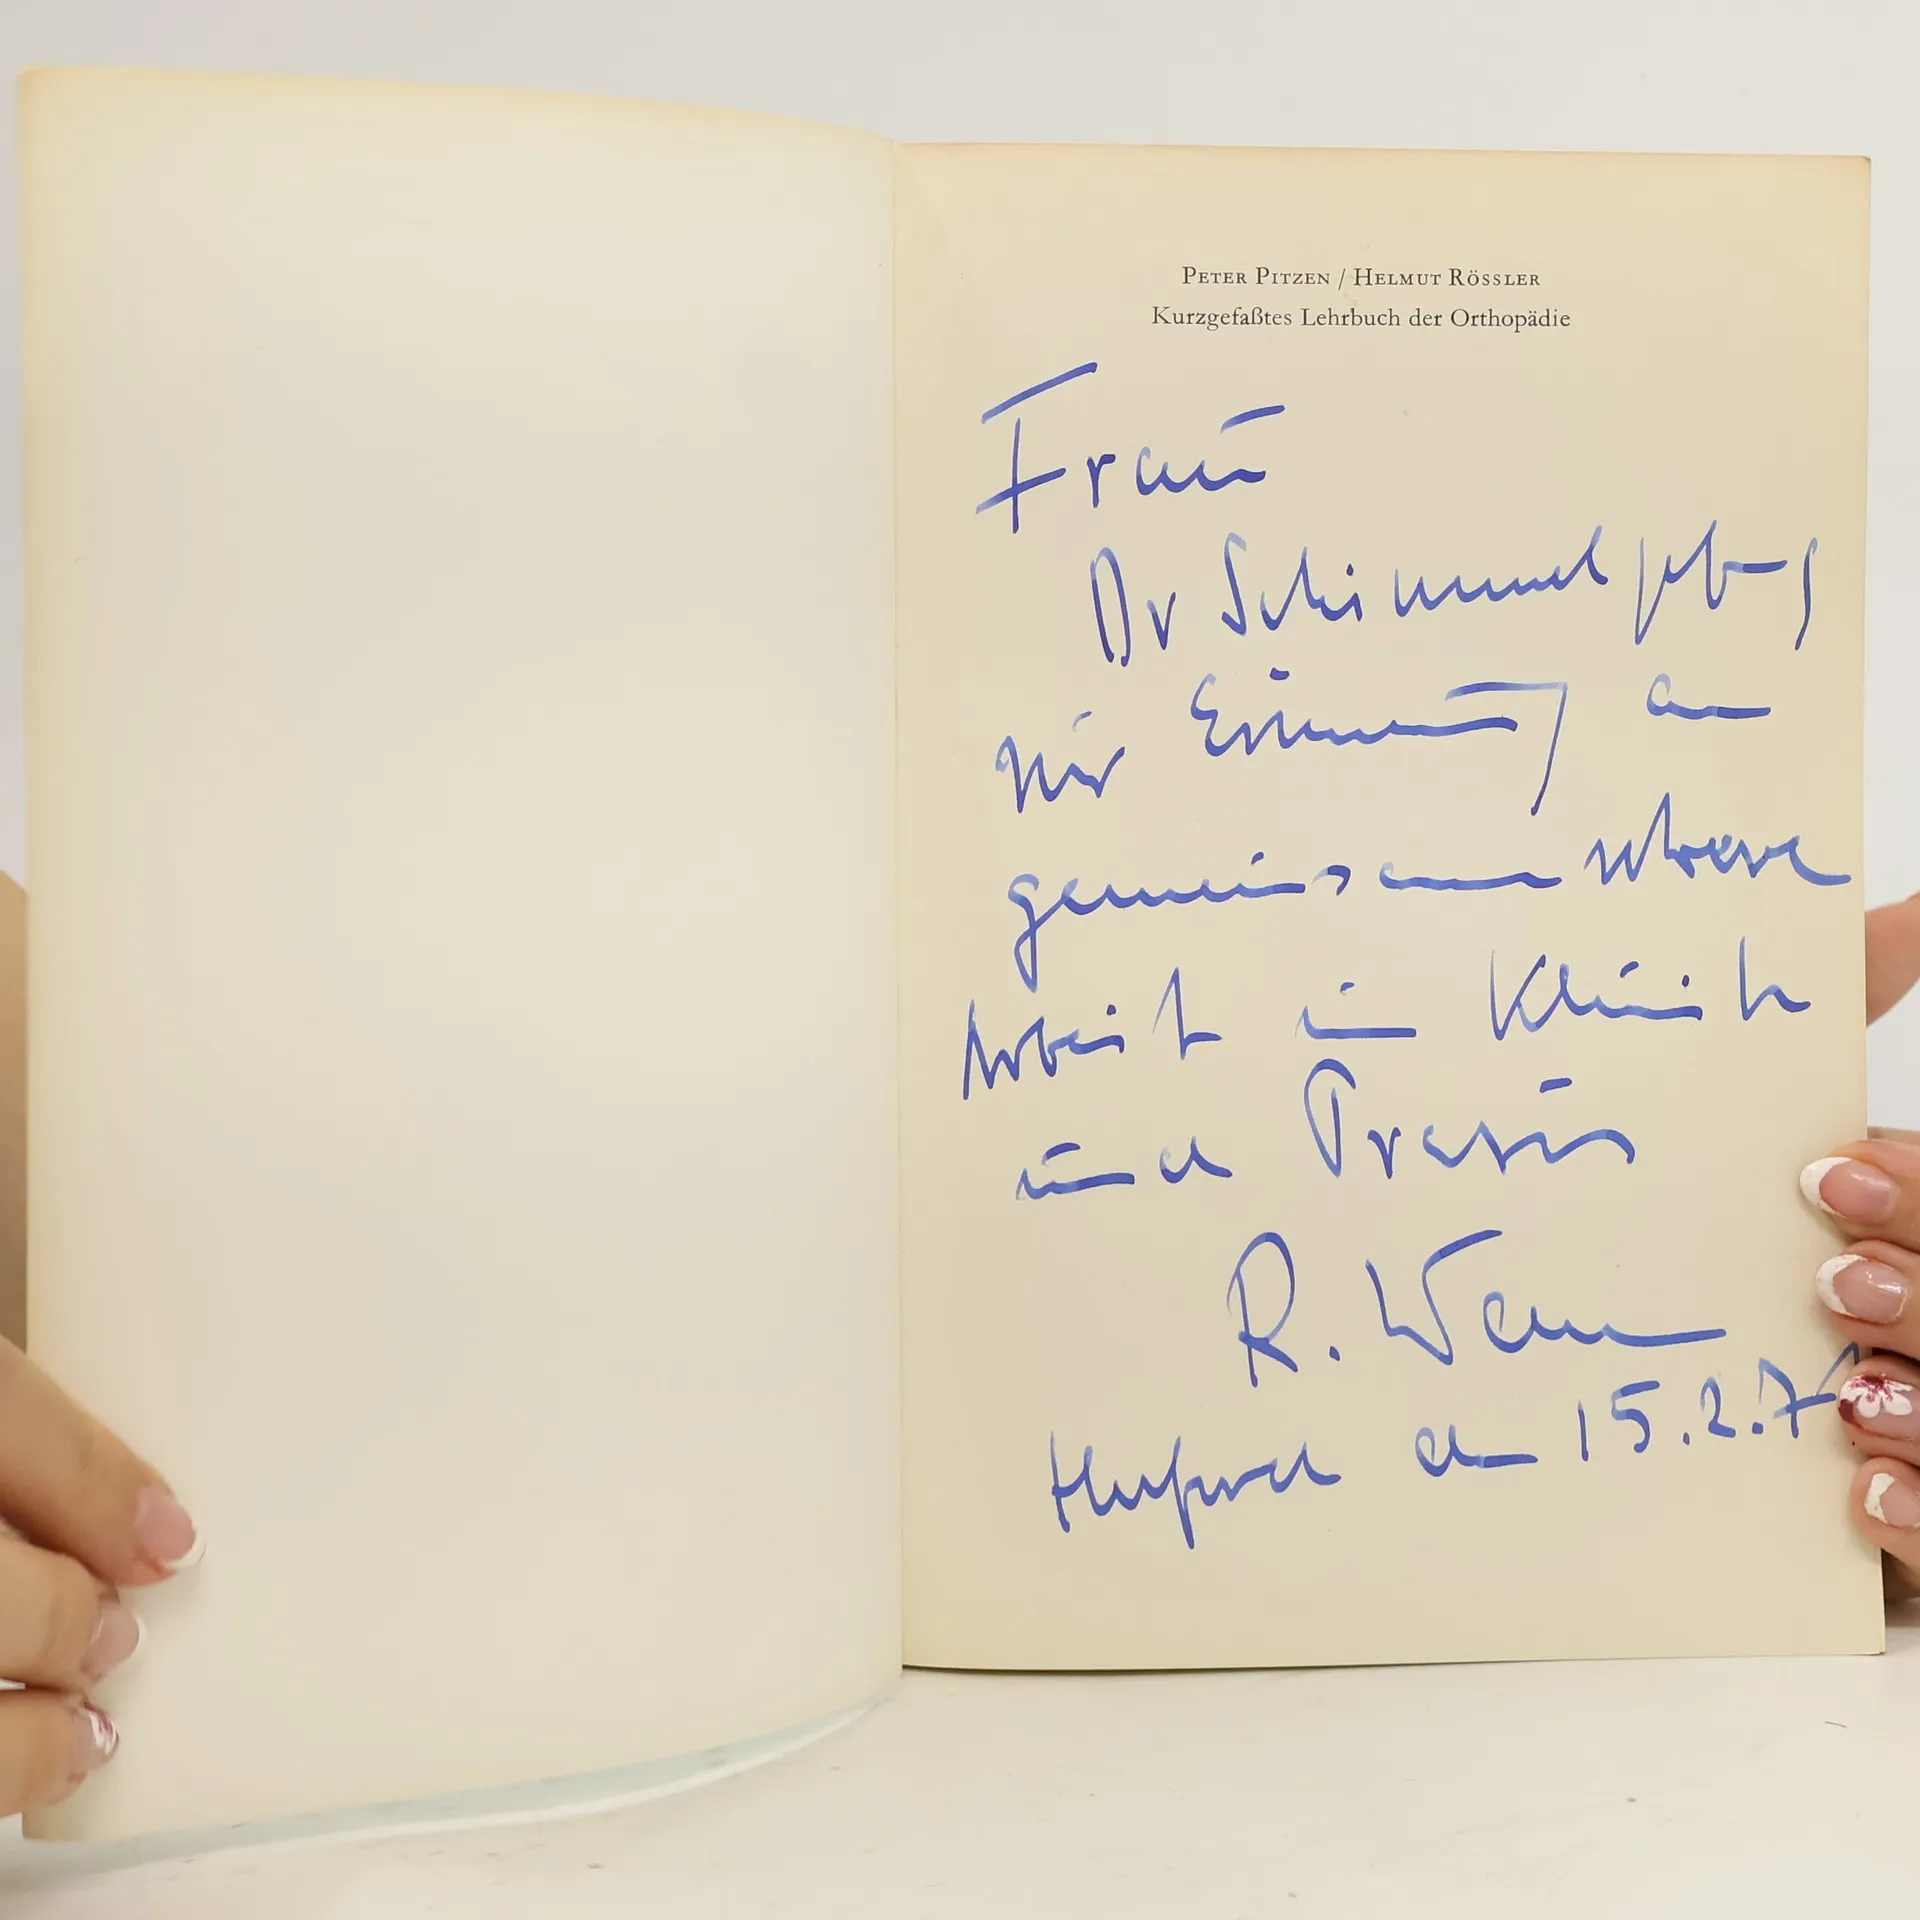 PETER PITZEN / HELMUT RÖSSLER
Kurzgefaßtes Lehrbuch der Orthopädie
Frau
Dr Schimmel
zur Erinnerung an
gemeinsame schwere
Arbeit in Klinik
und Praxis
R.
den 15.2.7